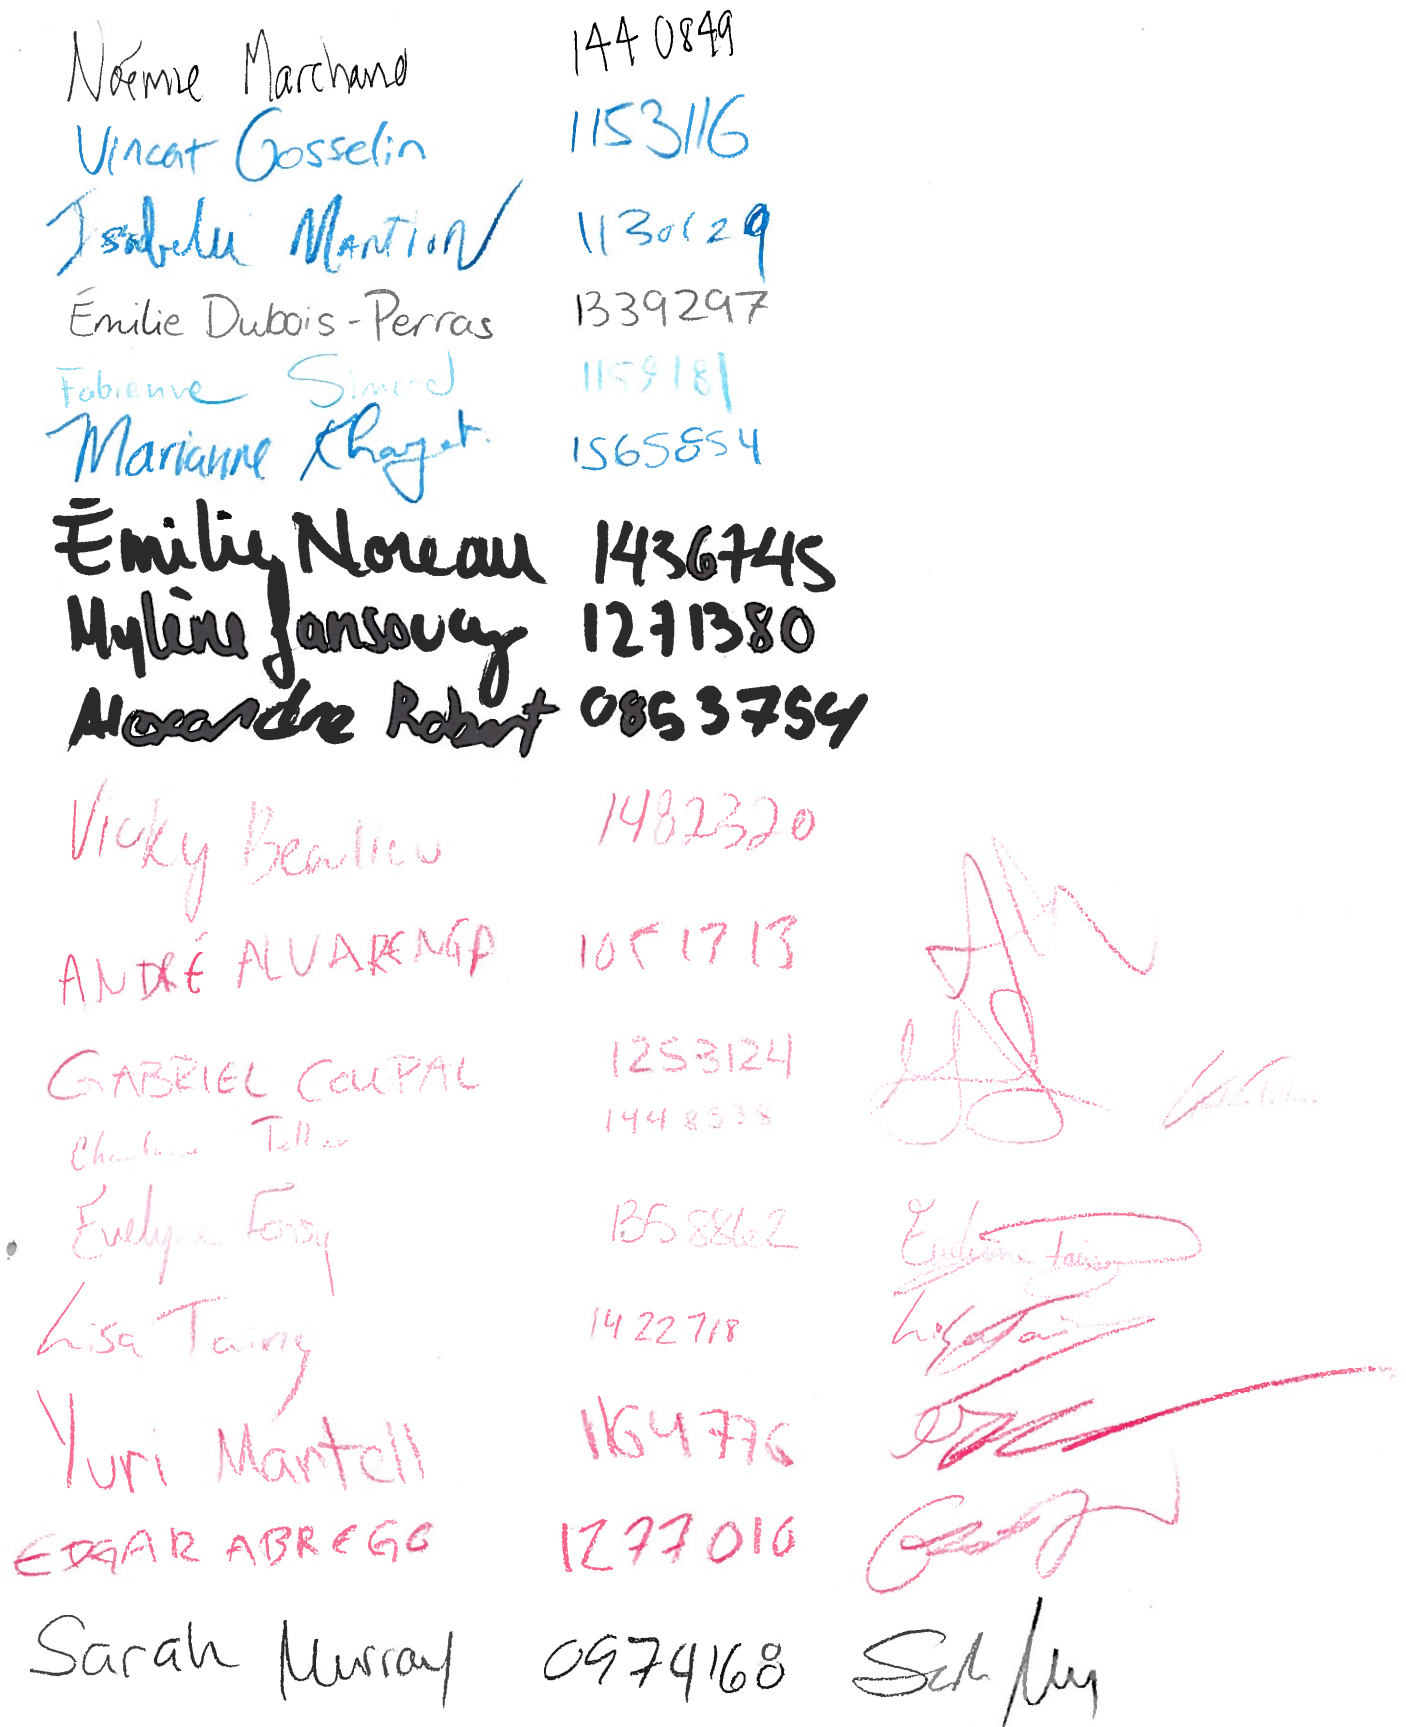 Noémie Marchand 1440849
Vincent Gosselin 1153116
Isabelle Mantion 1130129
Émilie Dubois-Perras 1339297
Fabienne Simard 1159181
Marianne 1565854
Émilie Noreau 1436745
Mylène Jansoucy 1271380
Alexandre Robert 0853754
Vicky Beaulieu 1482320
ANDRÉ ALVARENGA 1051713
GABRIEL COUPAL 1253124
1448538
Evelyne Foisy 1358862
Lisa Taing 1422718 Lisa Taing
Yuri Mantell 1164776
EDGAR ABREGO 1277010
Sarah Murray 0974168